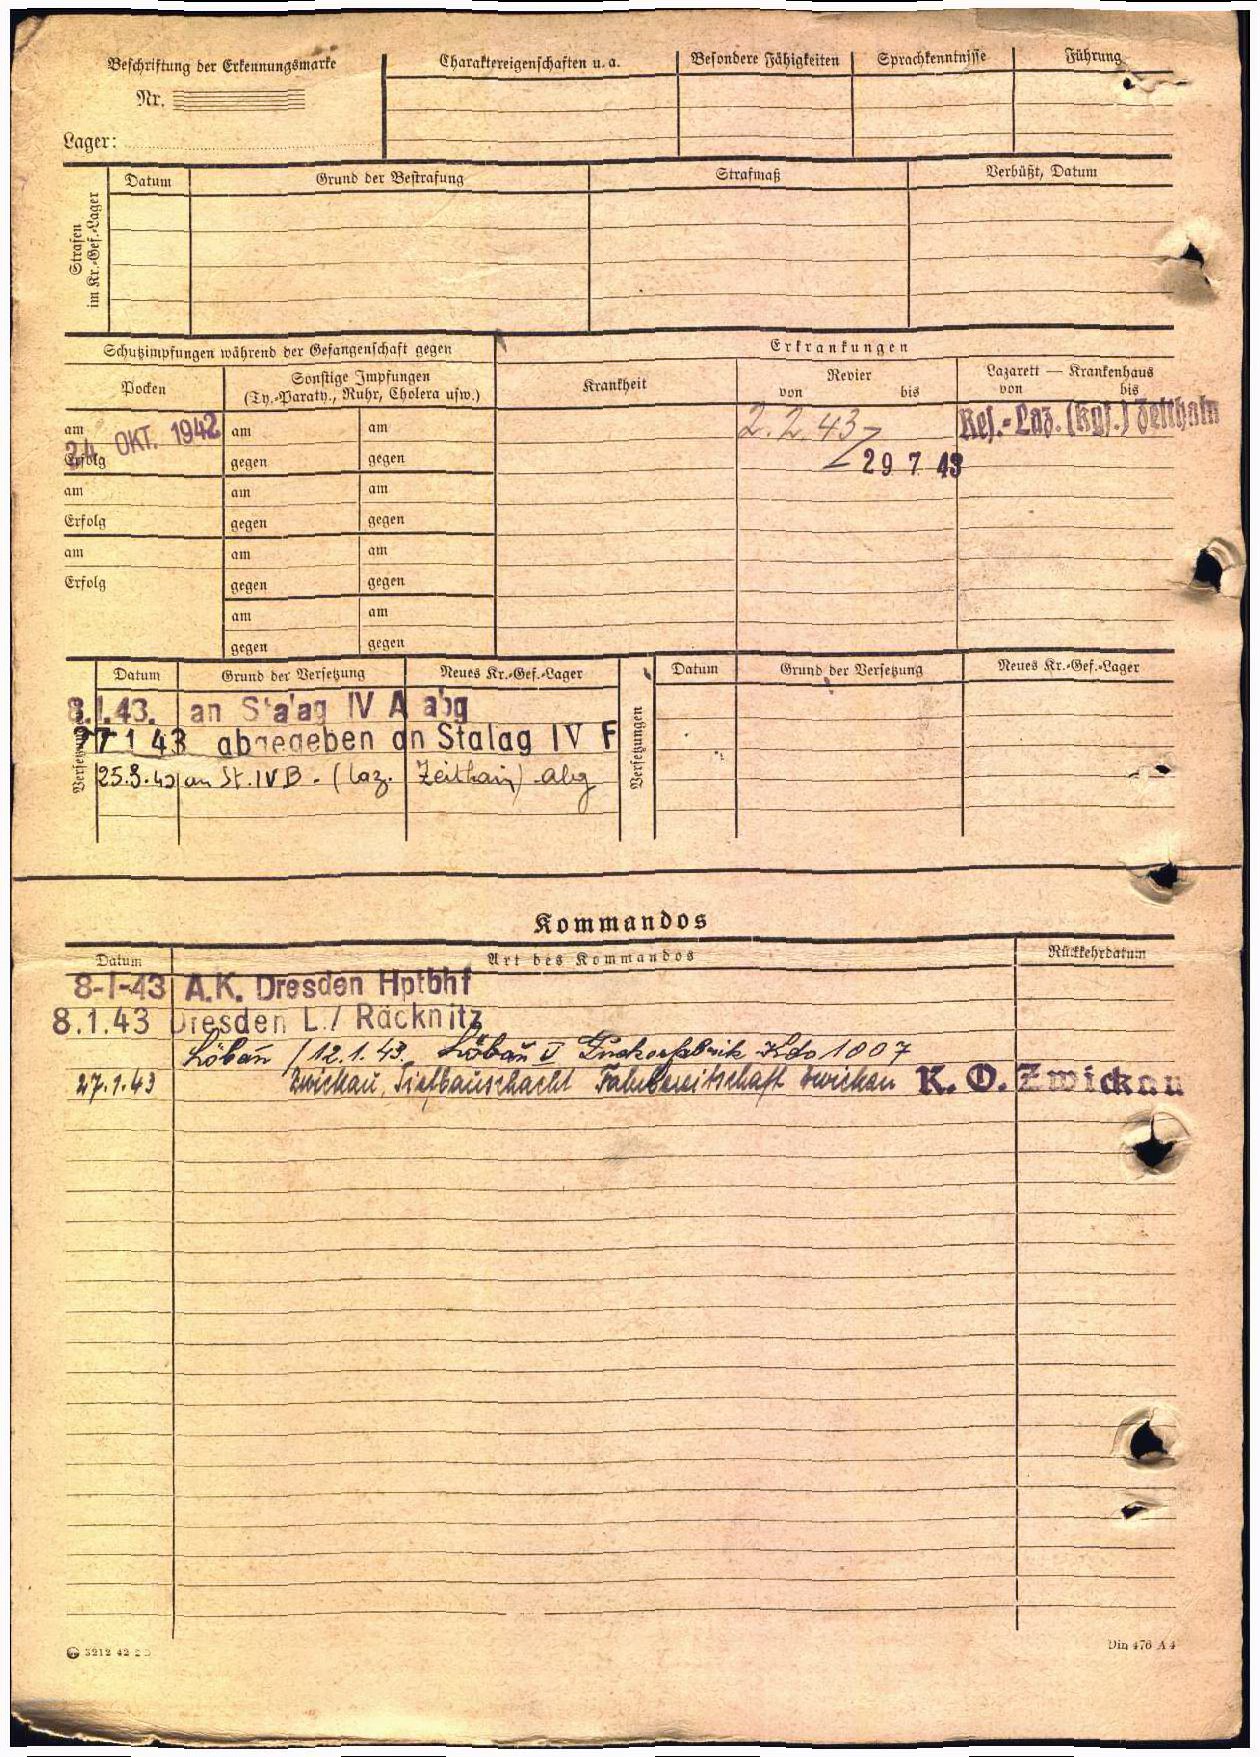 Beschriftung der Erkennungsmarke Charaktereigenschaften u. a. Besondere Fähigkeiten Sprachkenntnisse Führung
Nr.
Lager:
Strafen im Kr.-Gef.-Lager
Datum Grund der Bestrafung Strafmaß Verbüßt, Datum
Schutzimpfungen während der Gefangenschaft gegen Erkrankungen
Pocken Sonstige Impfungen Krankheit Revier Lazarett — Krankenhaus
(Ty.-Paraty., Ruhr, Cholera usw.) von bis von bis
am 24 OKT. 1942 am am 2.2.43 Res.-Laz. (Kgf.) Zeithain
Erfolg gegen gegen 29 7 43
am am am
Erfolg gegen gegen
am am am
Erfolg gegen gegen
am am
gegen gegen
Versetzungen
Datum Grund der Versetzung Neues Kr.-Gef.-Lager
8.1.43. an Stalag IV A abg
27 1 43 abgegeben an Stalag IV F
25.3.43 an St. IV B. (Laz. Zeithain) abg
Versetzungen
Datum Grund der Versetzung Neues Kr.-Gef.-Lager
Kommandos
Datum Art des Kommandos Rückkehrdatum
8-1-43 A.K. Dresden Hptbhf
8.1.43 Dresden L./ Räcknitz
Löbau / 12.1.43. Löbau I Zuckerfabrik Kdo 1007
27.1.43 Zwickau, Tiefbauschacht Fahrbereitschaft Zwickau K. O. Zwickau
3212 42 2 D Din 476 A 4